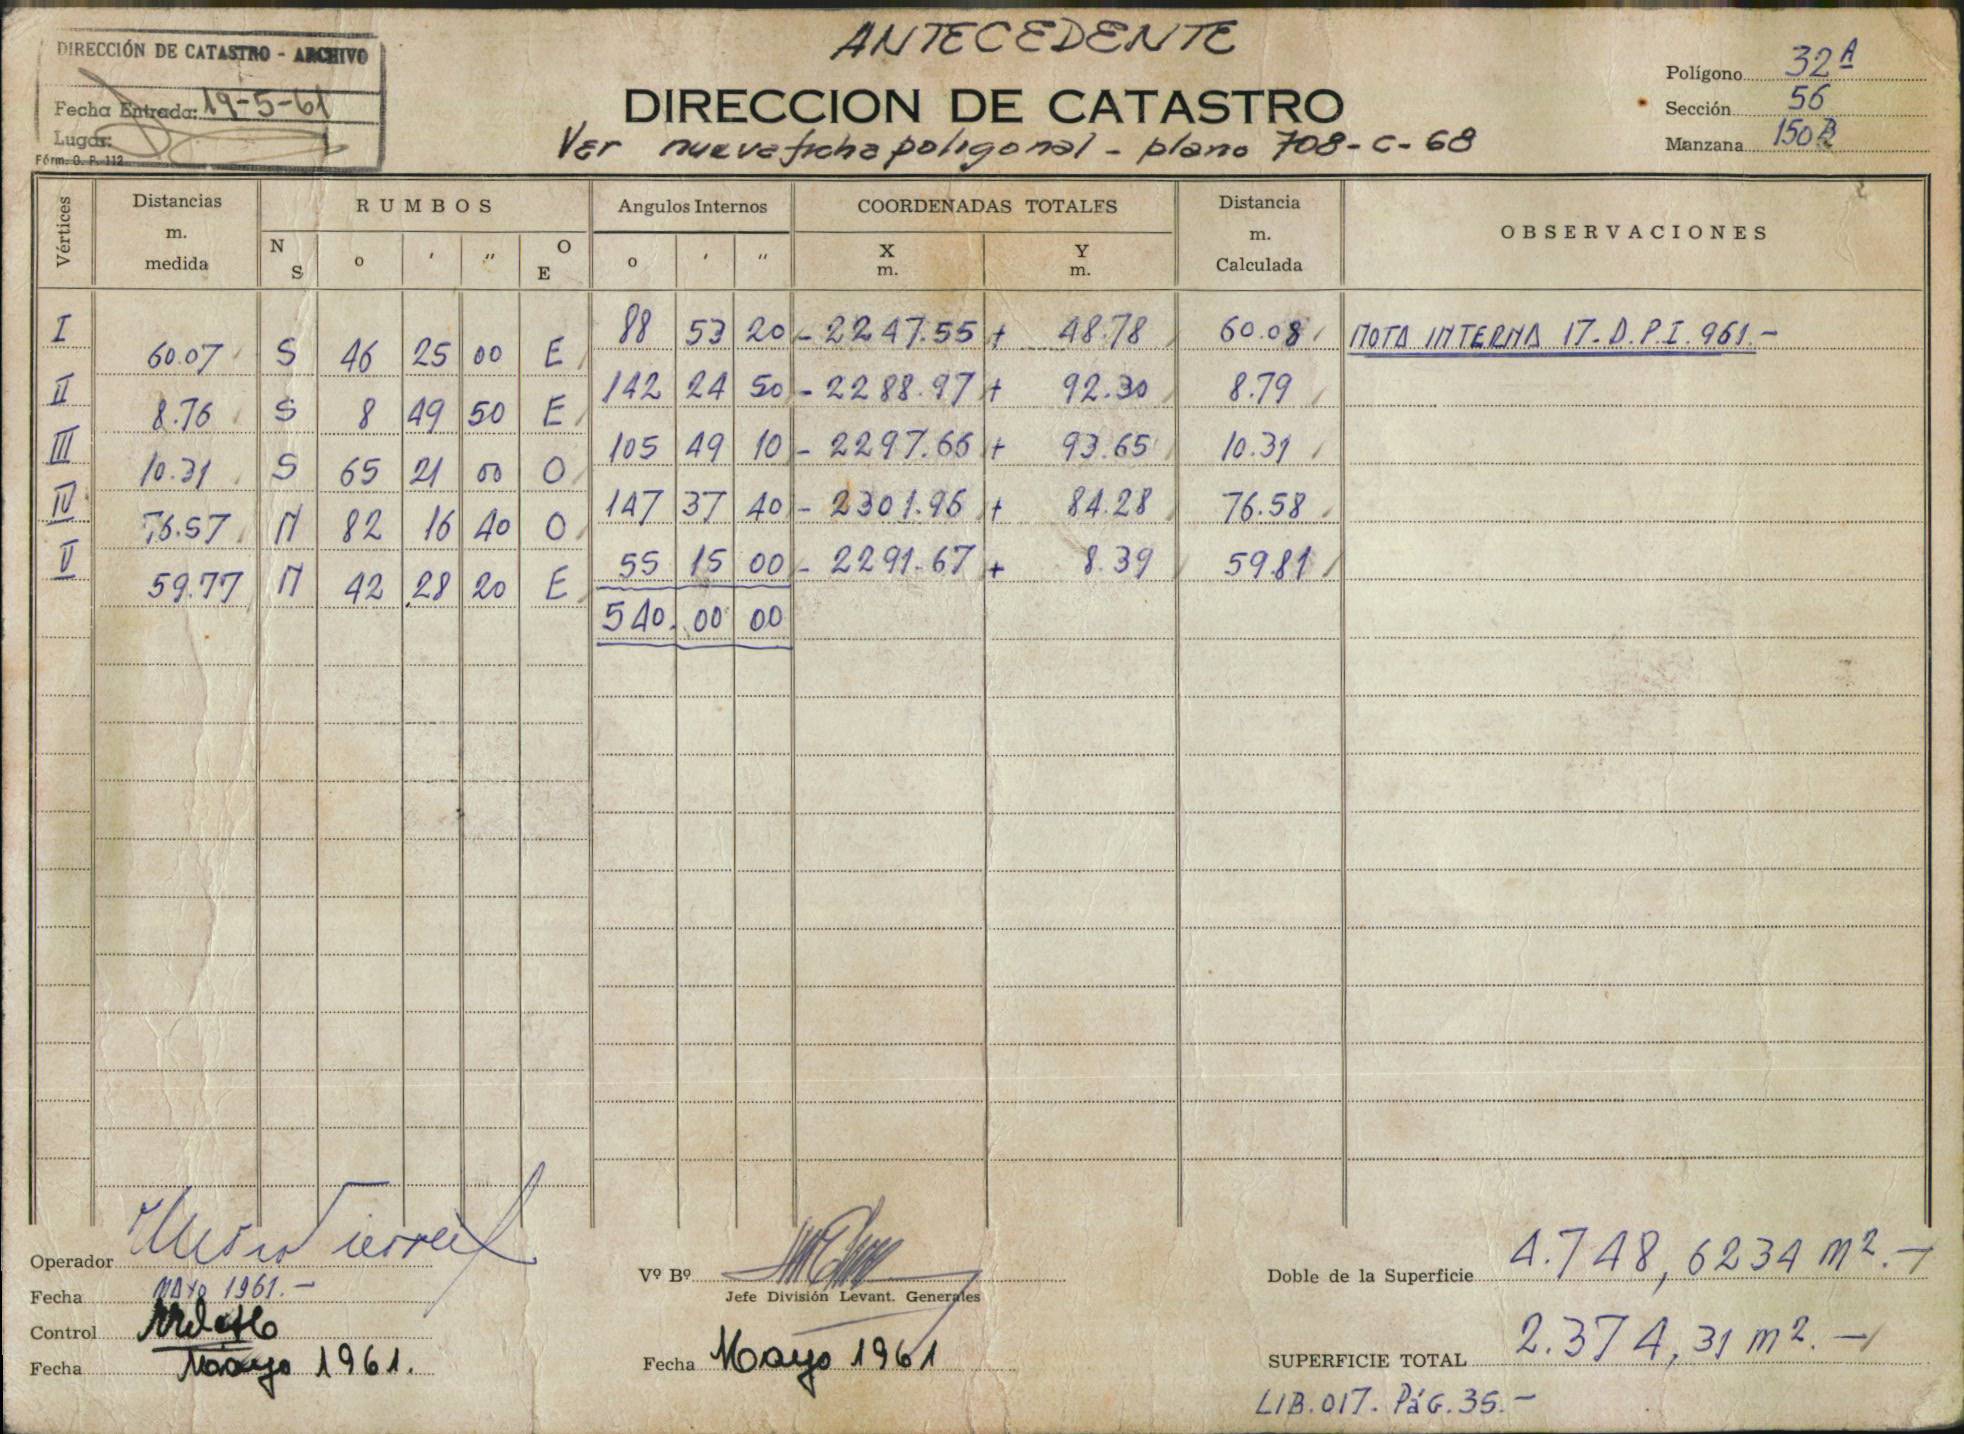 ANTECEDENTE
DIRECCIÓN DE CATASTRO - ARCHIVO
Fecha Entrada: 19-5-61
Lugar:
Fórm. O. P. 112
DIRECCION DE CATASTRO
Ver nueva ficha poligonal - plano 708-C-68
Polígono 32A
Sección 56
Manzana 150B
Vértices Distancias m. medida RUMBOS Angulos Internos COORDENADAS TOTALES Distancia m. Calculada OBSERVACIONES
N S o ' " O E o ' " X m. Y m.
I 88 53 20 - 2247.55 + 48.78 60.08 NOTA INTERNA 17-D.P.I. 961.-
60.07 S 46 25 00 E
II 142 24 50 - 2288.97 + 92.30 8.79
8.76 S 8 49 50 E
III 105 49 10 - 2297.66 + 93.65 10.31
10.31 S 65 21 00 O
IV 147 37 40 - 2301.96 + 84.28 76.58
76.57 N 82 16 40 O
V 55 15 00 - 2291.67 + 8.39 59.81
59.77 N 42 28 20 E
540. 00 00
Operador
Fecha MAYO 1961.-
Control
Fecha Mayo 1961.
Vº Bº
Jefe División Levant. Generales
Fecha Mayo 1961
Doble de la Superficie 4.748,6234 m2.-
SUPERFICIE TOTAL 2.374,31 m2.-
LIB.017. PáG.35.-